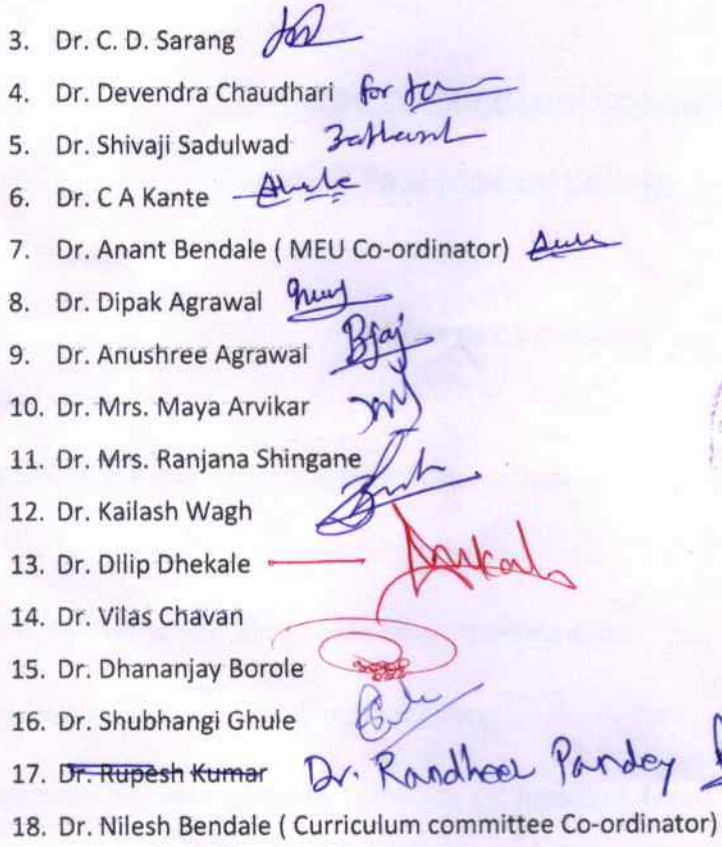 3. Dr. C. D. Sarang
4. Dr. Devendra Chaudhari for
5. Dr. Shivaji Sadulwad
6. Dr. C A Kante
7. Dr. Anant Bendale ( MEU Co-ordinator)
8. Dr. Dipak Agrawal
9. Dr. Anushree Agrawal
10. Dr. Mrs. Maya Arvikar
11. Dr. Mrs. Ranjana Shingane
12. Dr. Kailash Wagh
13. Dr. DIlip Dhekale
14. Dr. Vilas Chavan
15. Dr. Dhananjay Borole
16. Dr. Shubhangi Ghule
17. Dr. Rupesh Kumar Dr. Randheer Pandey
18. Dr. Nilesh Bendale ( Curriculum committee Co-ordinator)